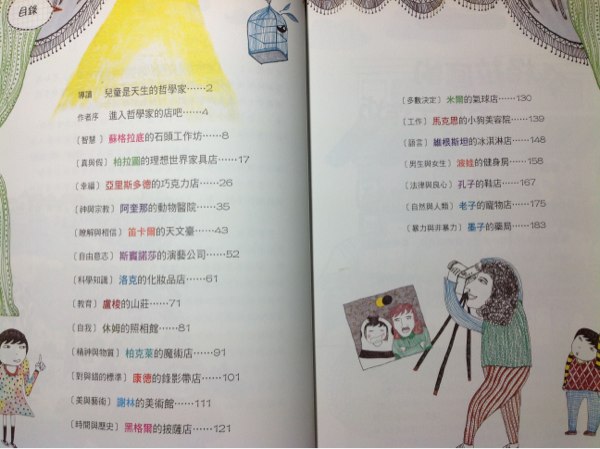 目錄
導讀 兒童是天生的哲學家……2
作者序 進入哲學家的店吧……4
〔智慧〕蘇格拉底的石頭工作坊……8
〔真與假〕柏拉圖的理想世界家具店……17
〔幸福〕亞里斯多德的巧克力店……26
〔神與宗教〕阿奎那的動物醫院……35
〔瞭解與相信〕笛卡爾的天文臺……43
〔自由意志〕斯賓諾莎的演藝公司……52
〔科學知識〕洛克的化妝品店……61
〔教育〕盧梭的山莊……71
〔自我〕休姆的照相館……81
〔精神與物質〕柏克萊的魔術店……91
〔對與錯的標準〕康德的錄影帶店……101
〔美與藝術〕謝林的美術館……111
〔時間與歷史〕黑格爾的披薩店……121
〔多數決定〕米爾的氣球店……130
〔工作〕馬克思的小狗美容院……139
〔語言〕維根斯坦的冰淇淋店……148
〔男生與女生〕波娃的健身房……158
〔法律與良心〕孔子的鞋店……167
〔自然與人類〕老子的寵物店……175
〔暴力與非暴力〕墨子的藥局……183